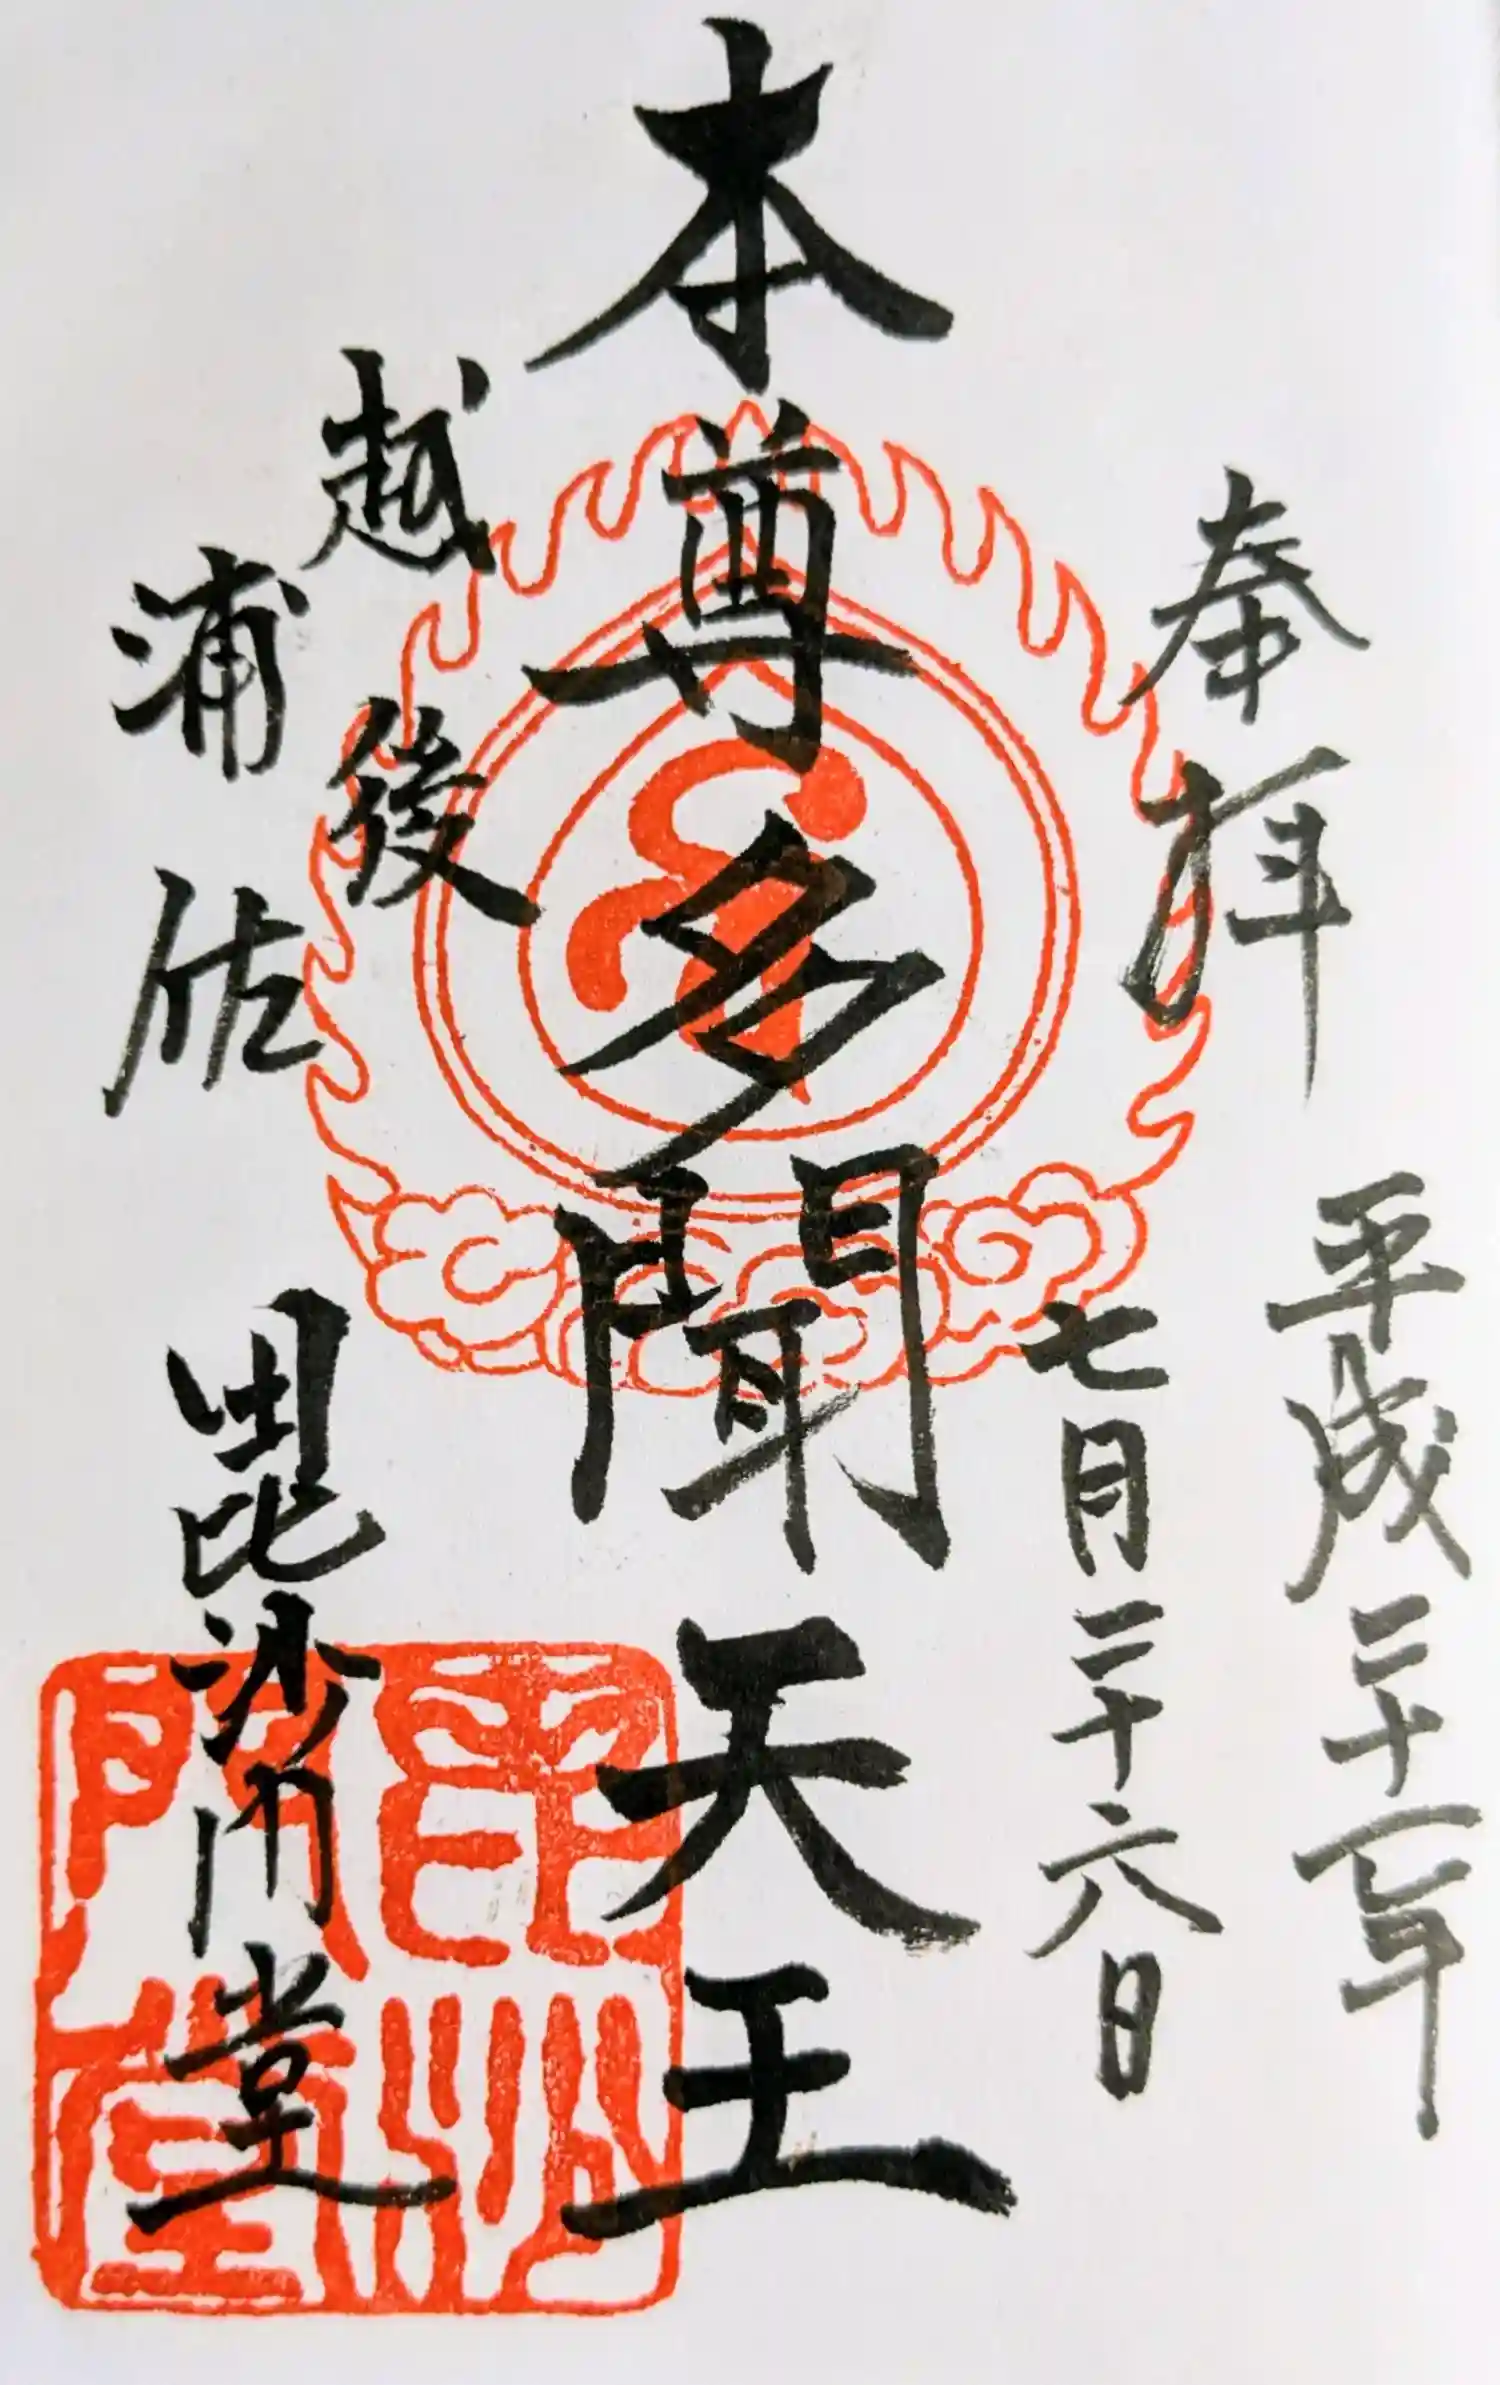 奉拝
平成二十一年
七月二十六日
本尊多聞天王
越後
浦佐
毘沙門堂
毘沙
門堂